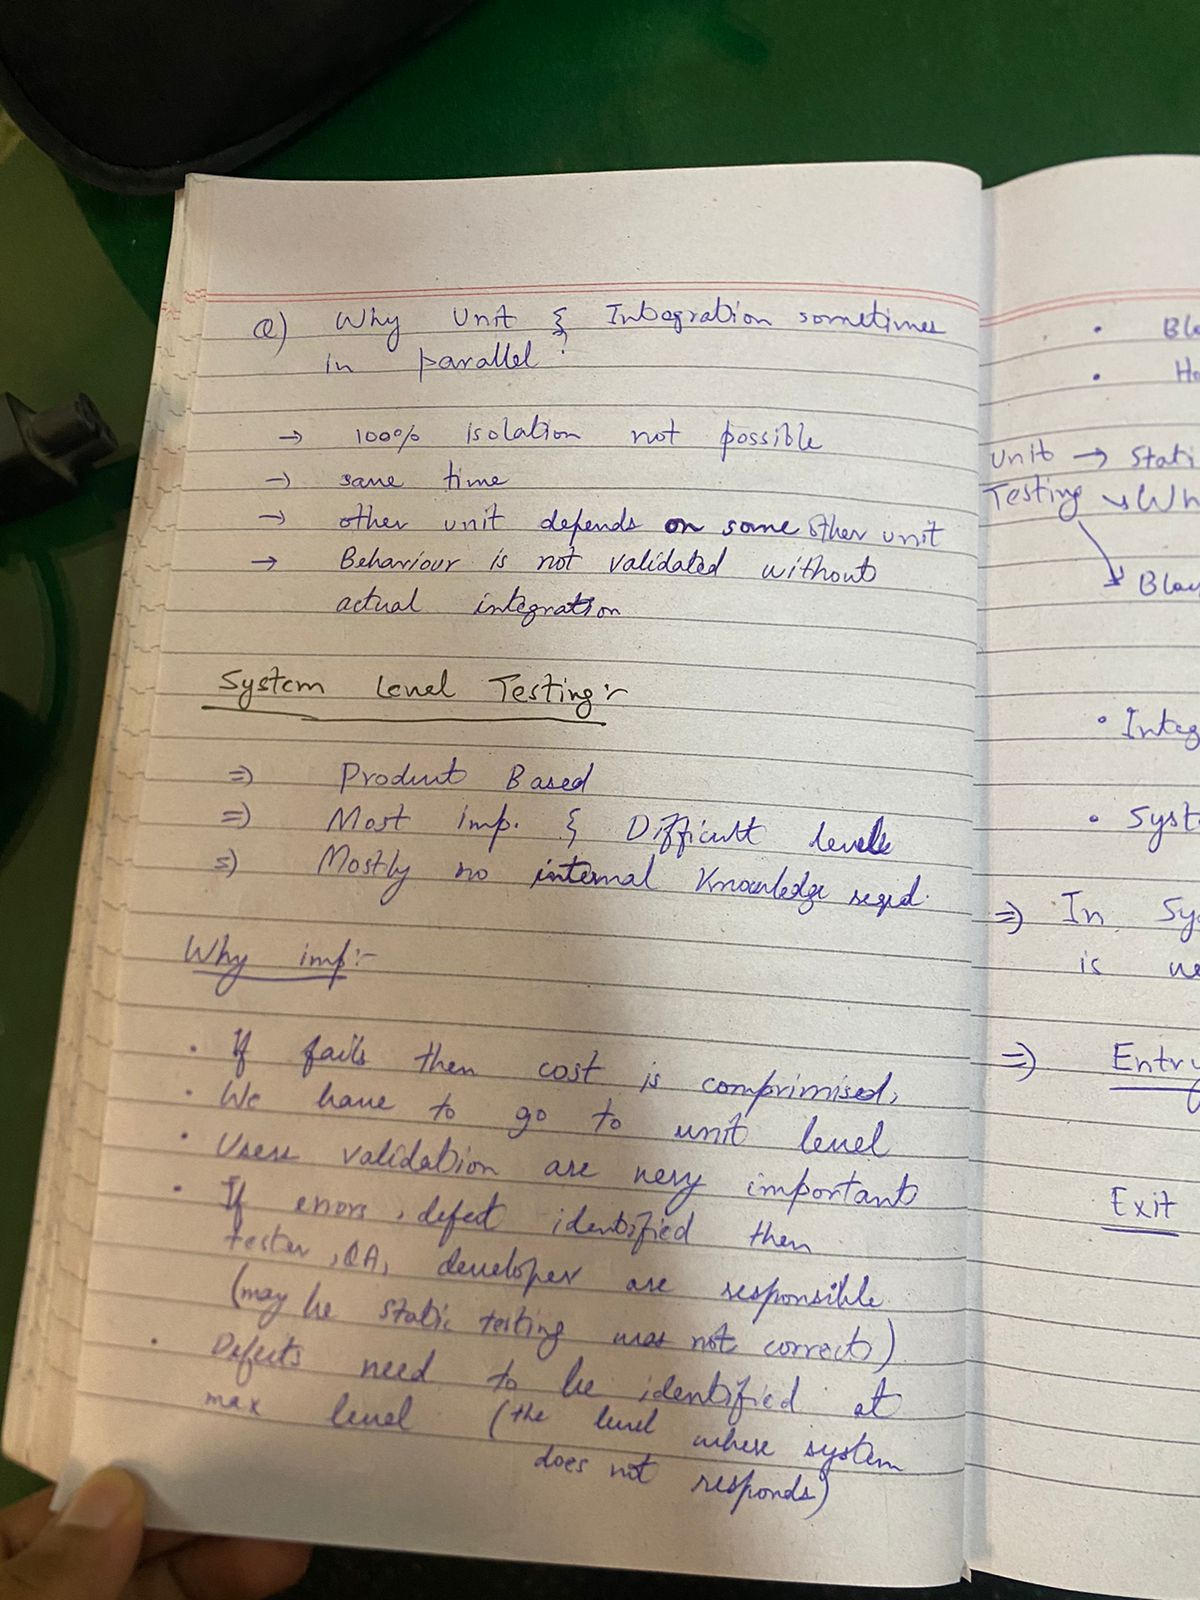 Q) Why Unit & Integration sometimes
in parallel :
→ 100% isolation not possible
→ same time
→ other unit depends on some other unit
→ Behaviour is not validated without
actual integration
System Level Testing:-
=> Product Based
=> Most imp. & Difficult levels
=> Mostly no internal Knowledge reqd.
Why imp:-
• If fails then cost is comprimised,
• We have to go to unit level
• Users validation are very important
• If errors, defect identified then
tester, QA, developer are responsible
(may be static testing was not correct)
• Defects need to be identified at
max level (the level where system
does not responds)
• Bl
• Ho
Unit → Stati
Testing ↘ Wh
↘ Blac
• Integ
• Syst
=> In Sy
is ne
=> Entry
Exit